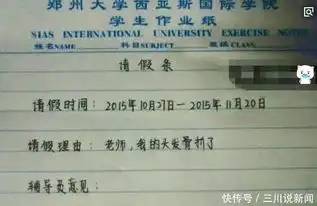 郑州大学西亚斯国际学院
学生作业纸
SIAS INTERNATIONAL UNIVERSITY EXERCISE NOTES
姓名NAME 科目SUBJECT 班级CLASS
请假条
请假时间：2015年10月27日—2015年11月20日
请假理由：老师，我的头发骨折了
辅导员意见：
快传号／三川说新闻